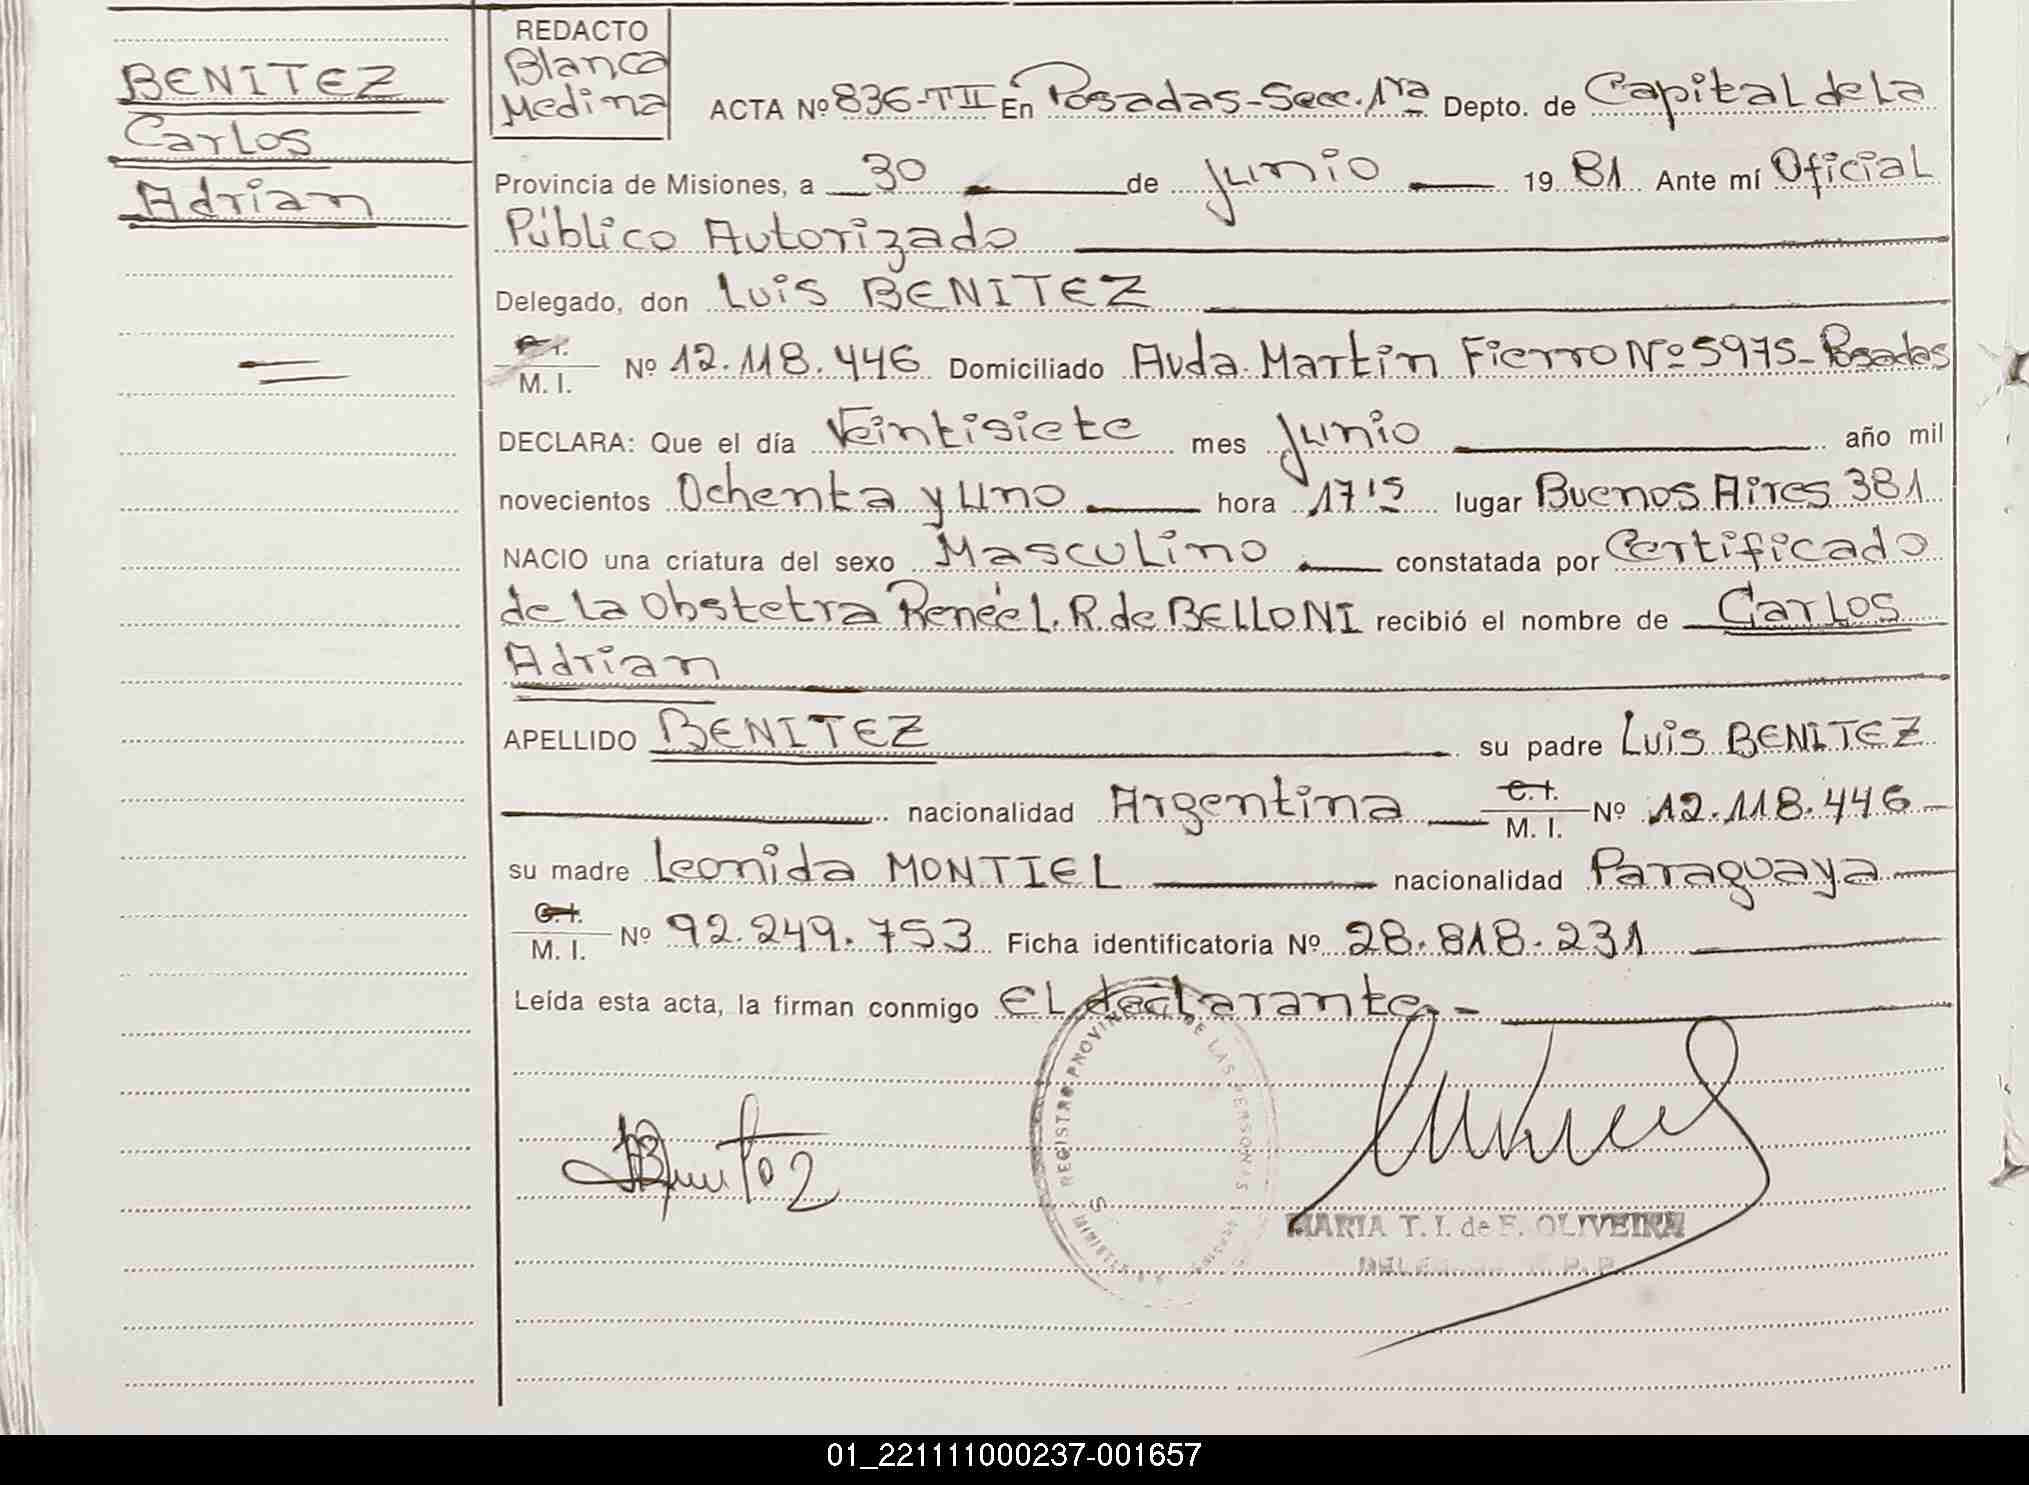 BENITEZ
Carlos
Adrian
REDACTO
Blanca
Medina
ACTA Nº 836-TII En Posadas-Secc. 1ra Depto. de Capital de La
Provincia de Misiones, a 30 de Junio 19 81 Ante mí Oficial
Público Autorizado
Delegado, don Luis BENITEZ
C. I.
M. I. Nº 12.118.446 Domiciliado Avda. Martin Fierro Nº 5975- Posadas
DECLARA: Que el día Veintisiete mes Junio año mil
novecientos Ochenta y Uno hora 17 15 lugar Buenos Aires 381
NACIO una criatura del sexo Masculino constatada por Certificado
de La Obstetra Renée L. R. de BELLONI recibió el nombre de Carlos
Adrian
APELLIDO BENITEZ su padre Luis BENITEZ
nacionalidad Argentina C. I. M. I. Nº 12.118.446
su madre Leonida MONTIEL nacionalidad Paraguaya
C. I.
M. I. Nº 92.249.753 Ficha identificatoria Nº 28.818.231
Leída esta acta, la firman conmigo El declarante.-
REGISTRO PROVIN DE LAS PERSONAS
MARIA T. I. de F. OLIVEIRA
01_221111000237-001657